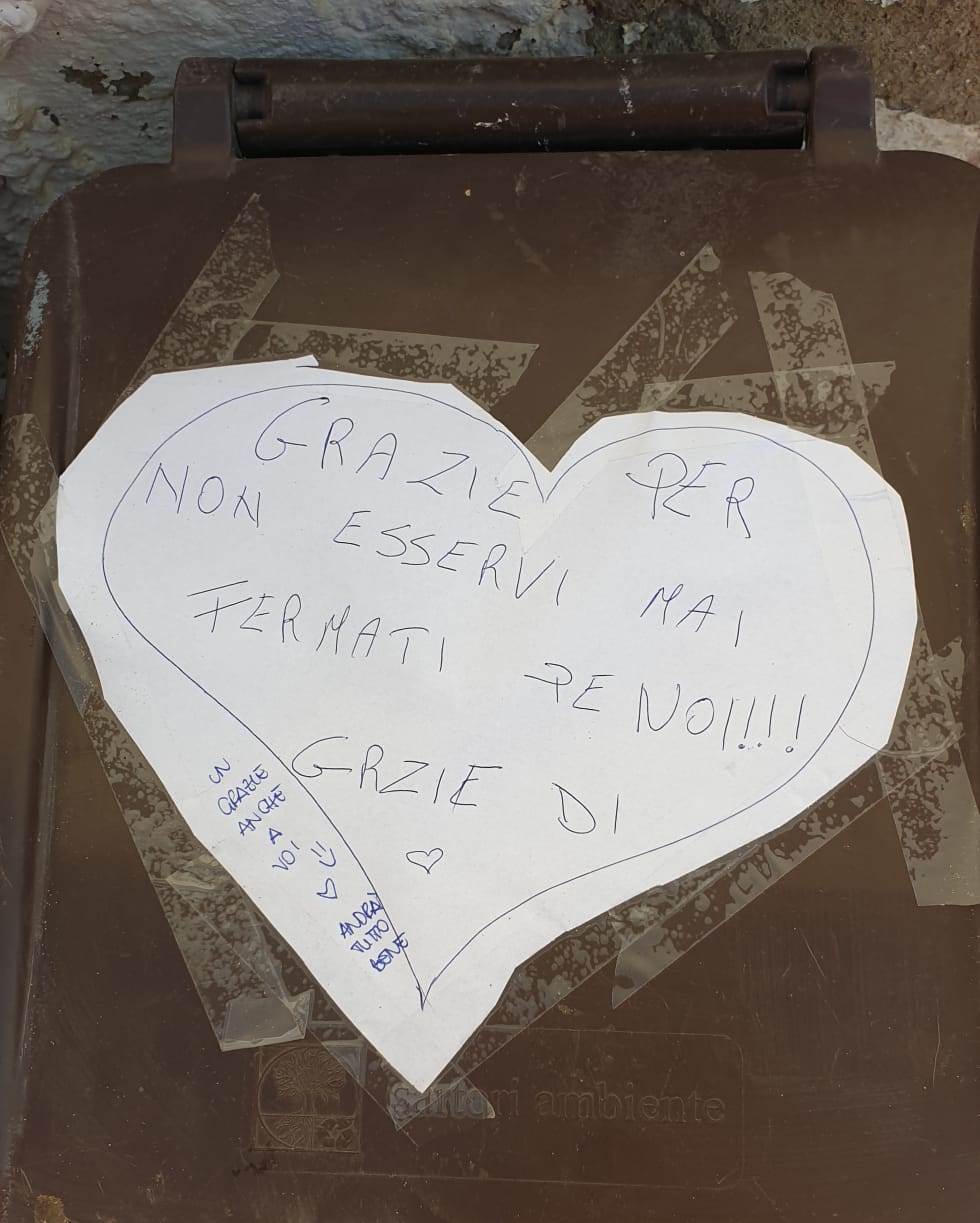 GRAZIE PER
NON ESSERVI MAI
FERMATI PE NOI!!!!
GRZIE DI
♡
UN
GRAZIE
ANCHE
A
VOI :)
♡
ANDRÀ
TUTTO
BENE
sartori ambiente